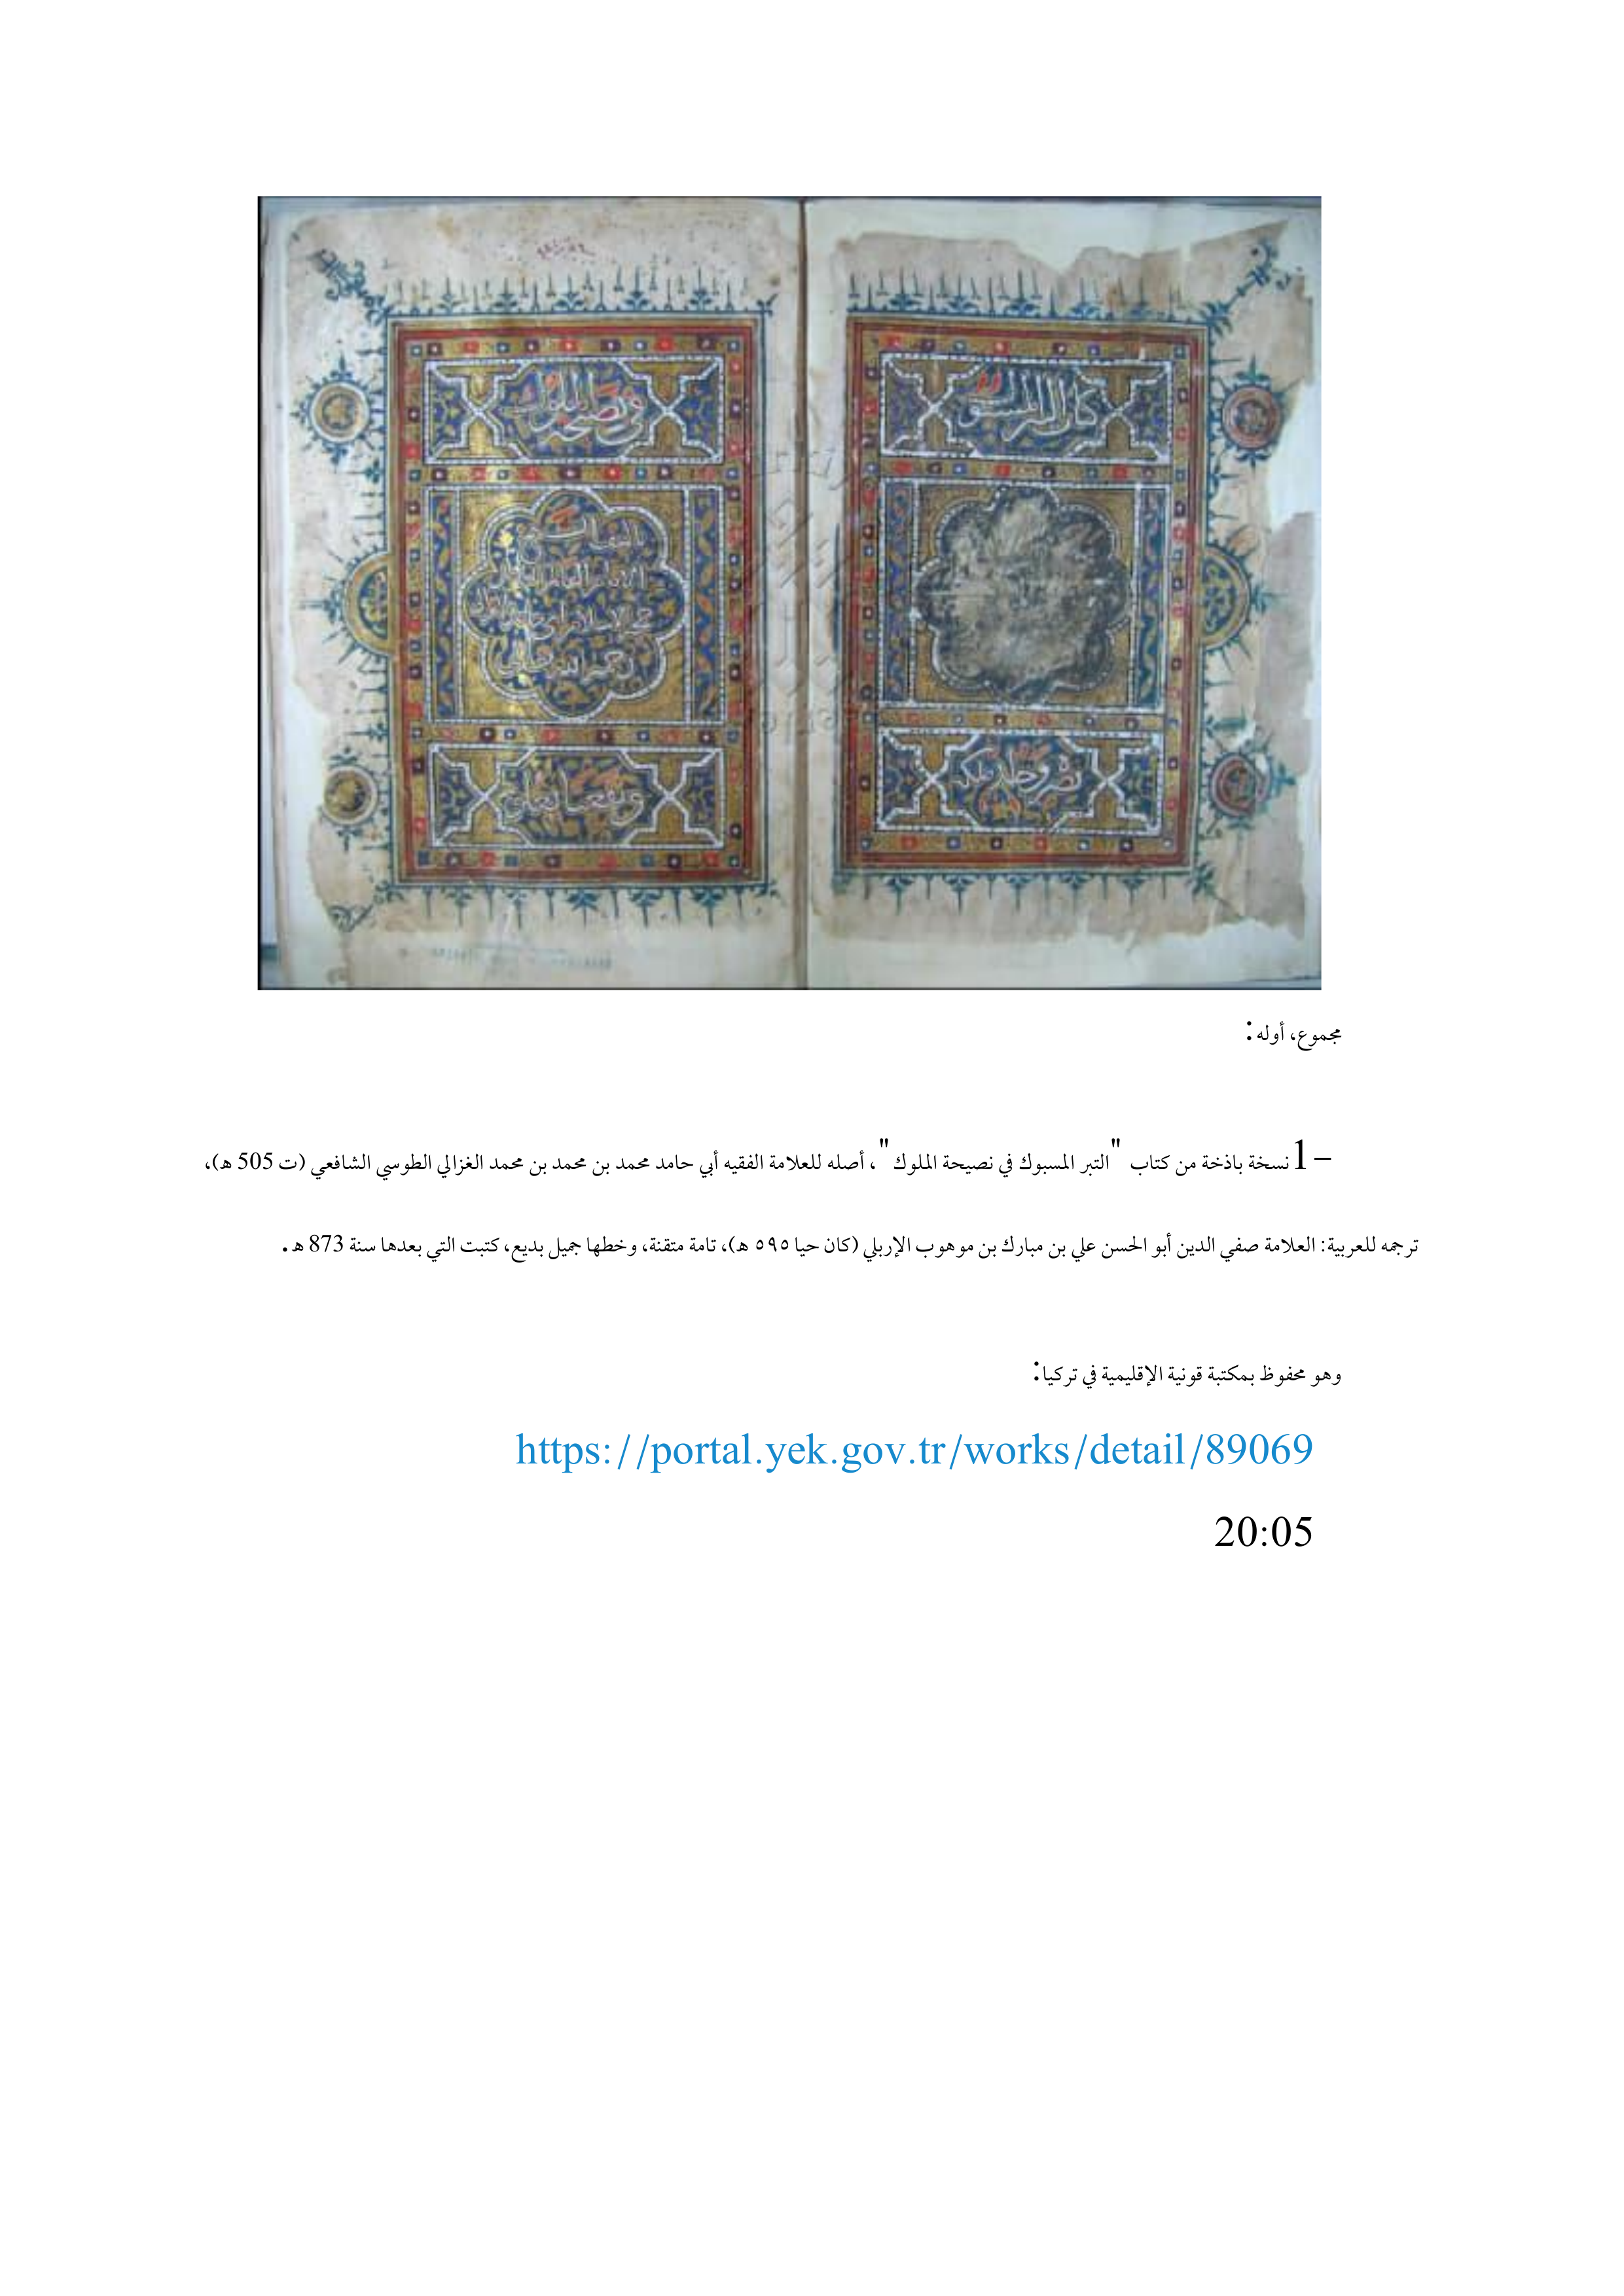 كتاب التبر المسبوك
في نصيحة الملوك
الامام العالم العامل
مجموع، أوله:
1– نسخة باذخة من كتاب "التبر المسبوك في نصيحة الملوك"، أصله للعلامة الفقيه أبي حامد محمد بن محمد بن محمد الغزالي الطوسي الشافعي (ت 505 هـ)،
ترجمه للعربية: العلامة صفي الدين أبو الحسن علي بن مبارك بن موهوب الإربلي (كان حيا ٥٩٥ هـ)، تامة متقنة، وخطها جميل بديع، كتبت التي بعدها سنة 873 هـ.
وهو محفوظ بمكتبة قونية الإقليمية في تركيا:
https://portal.yek.gov.tr/works/detail/89069
20:05